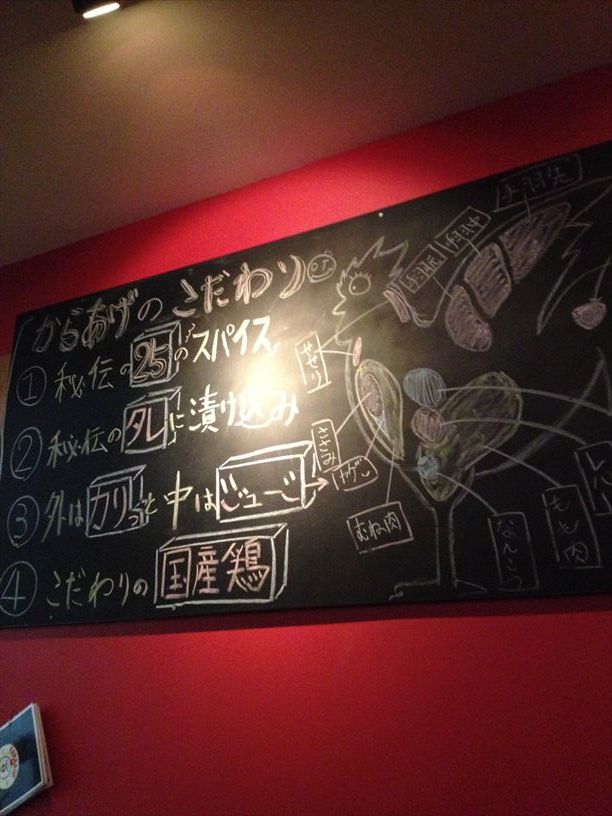 からあげのこだわり
① 秘伝の25のスパイス
② 秘伝のタレに漬け込み
③ 外はカリっと中はジューシー
④ こだわりの国産鶏
手羽先
手羽中
手羽元
せせり
ささみ
ヤゲン
むね肉
なんこつ
もも肉
レバー